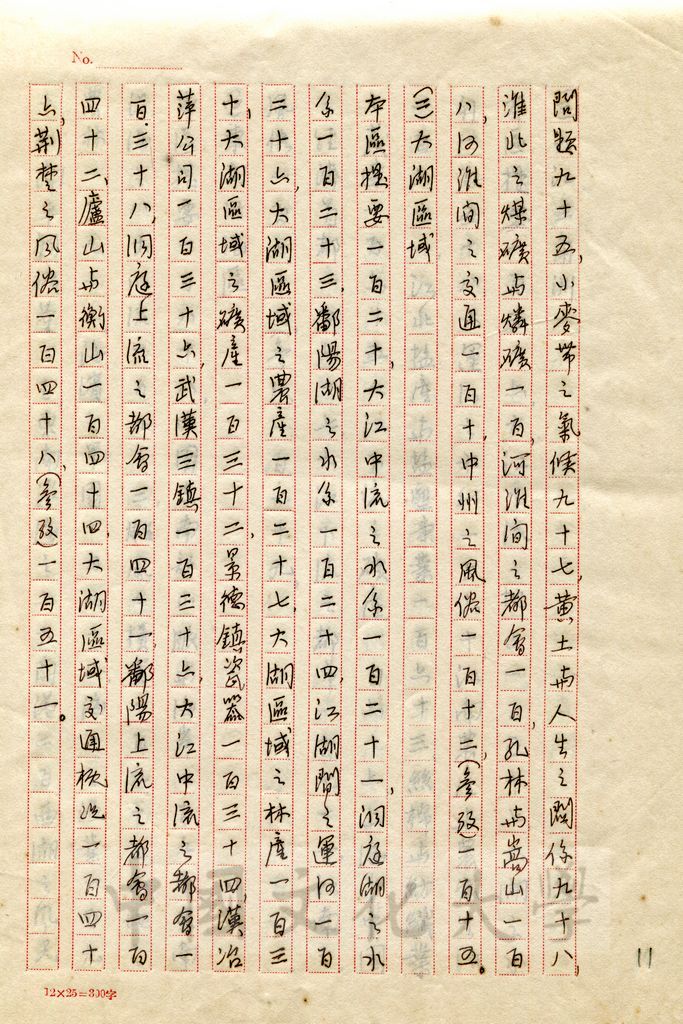 No.
問題九十五,小麥帶之氣候九十七,黄土与人生之關係九十八,
淮北之煤礦与燐礦一百,河淮间之都會一百,孔林与嵩山一百
八,河淮间之交通一百十,中州之風俗一百十二,(參攷)一百十五。
(三)大湖區域
本區提要一百二十,大江中流之水系一百二十一,洞庭湖之水
系一百二十三,鄱陽湖之水系一百二十四,江湖間之運河一百
二十六,大湖區域之農產一百二十七,大湖區域之林產一百三
十,大湖區域之礦產一百三十二,景德鎮瓷器一百三十四,漢冶
萍公司一百三十六,武漢三鎮一百三十六,大江中流之都會一
百三十八,洞庭上流之都會一百四十一,鄱陽上流之都會一百
四十二,廬山与衡山一百四十四,大湖區域交通概況一百四十
六,荆楚之風俗一百四十八,(參攷)一百五十一。
11
12×25=300字
中國文化大學